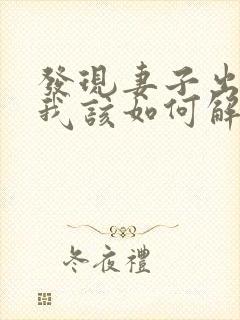 發現妻子出
我該如何解
冬夜禮